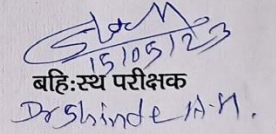 15/05/23
बहि:स्थ परीक्षक
Dr Shinde A.M.